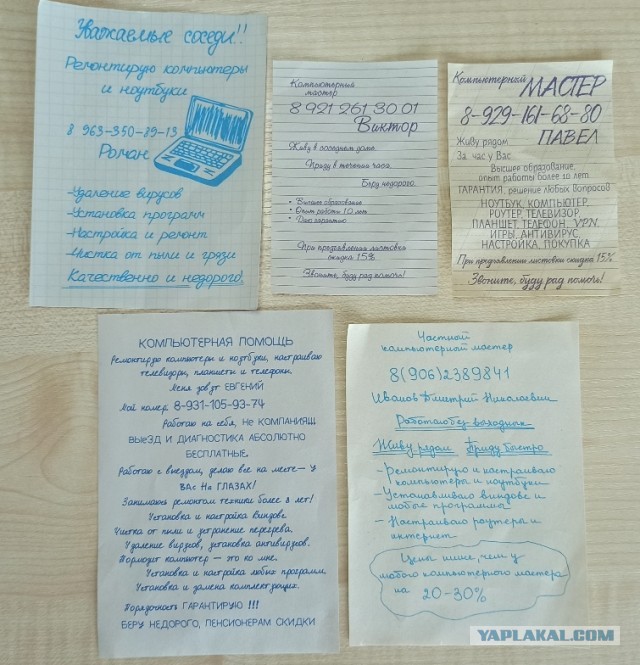 Уважаемые соседи!!
Ремонтирую компьютеры
и ноутбуки
8 963-350-89-13
Роман
-Удаление вирусов
-Установка программ
-Настройка и ремонт
-Чистка от пыли и грязи
Качественно и недорого!
Компьютерный
мастер
8 921 261 30 01
Виктор
Живу в соседнем доме.
Приду в течении часа.
Беру недорого.
• Высшее образование
• Опыт работы 10 лет
• Даю гарантию
При предъявлении листовки
скидка 15%
Звоните, буду рад помочь!
Компьютерный МАСТЕР
8-929-161-68-80
Живу рядом ПАВЕЛ
За час у Вас
Высшее образование,
опыт работы более 10 лет
ГАРАНТИЯ, решение любых вопросов
НОУТБУК, КОМПЬЮТЕР,
РОУТЕР, ТЕЛЕВИЗОР
ПЛАНШЕТ, ТЕЛЕФОН, VPN,
ИГРЫ, АНТИВИРУС
НАСТРОЙКА, ПОКУПКА
При предъявлении листовки скидка 15%
Звоните, буду рад помочь!
КОМПЬЮТЕРНАЯ ПОМОЩЬ
Ремонтирую компьютеры и ноутбуки, настраиваю
телевизоры, планшеты и телефоны.
Меня зовут ЕВГЕНИЙ
Мой номер 8-931-105-93-74
Работаю на себя, НЕ КОМПАНИЯ!!!
ВЫЕЗД И ДИАГНОСТИКА АБСОЛЮТНО
БЕСПЛАТНЫЕ.
Работаю с выездом, делаю все на месте – У
ВАС НА ГЛАЗАХ!
Занимаюсь ремонтом техники более 8 лет!
Установка и настройка виндовс
Чистка от пыли и устранение перегрева.
Удаление вирусов, установка антивирусов.
Тормозит компьютер – это ко мне.
Установка и настройка любых программ,
Установка и замена комплектующих.
Порядочность ГАРАНТИРУЮ !!!
БЕРУ НЕДОРОГО, ПЕНСИОНЕРАМ СКИДКИ
Частный
компьютерный мастер
8(906)2389841
Иванов Дмитрий Николаевич
Работаю без выходных
Живу рядом Приду быстро
- Ремонтирую и настраиваю
компьютеры и ноутбуки
- Устанавливаю виндовс и
любые программы
- Настраиваю роутеры и
интернет
Цены ниже, чем у
любого компьютерного мастера
на 20-30%
YAPLAKAL.COM